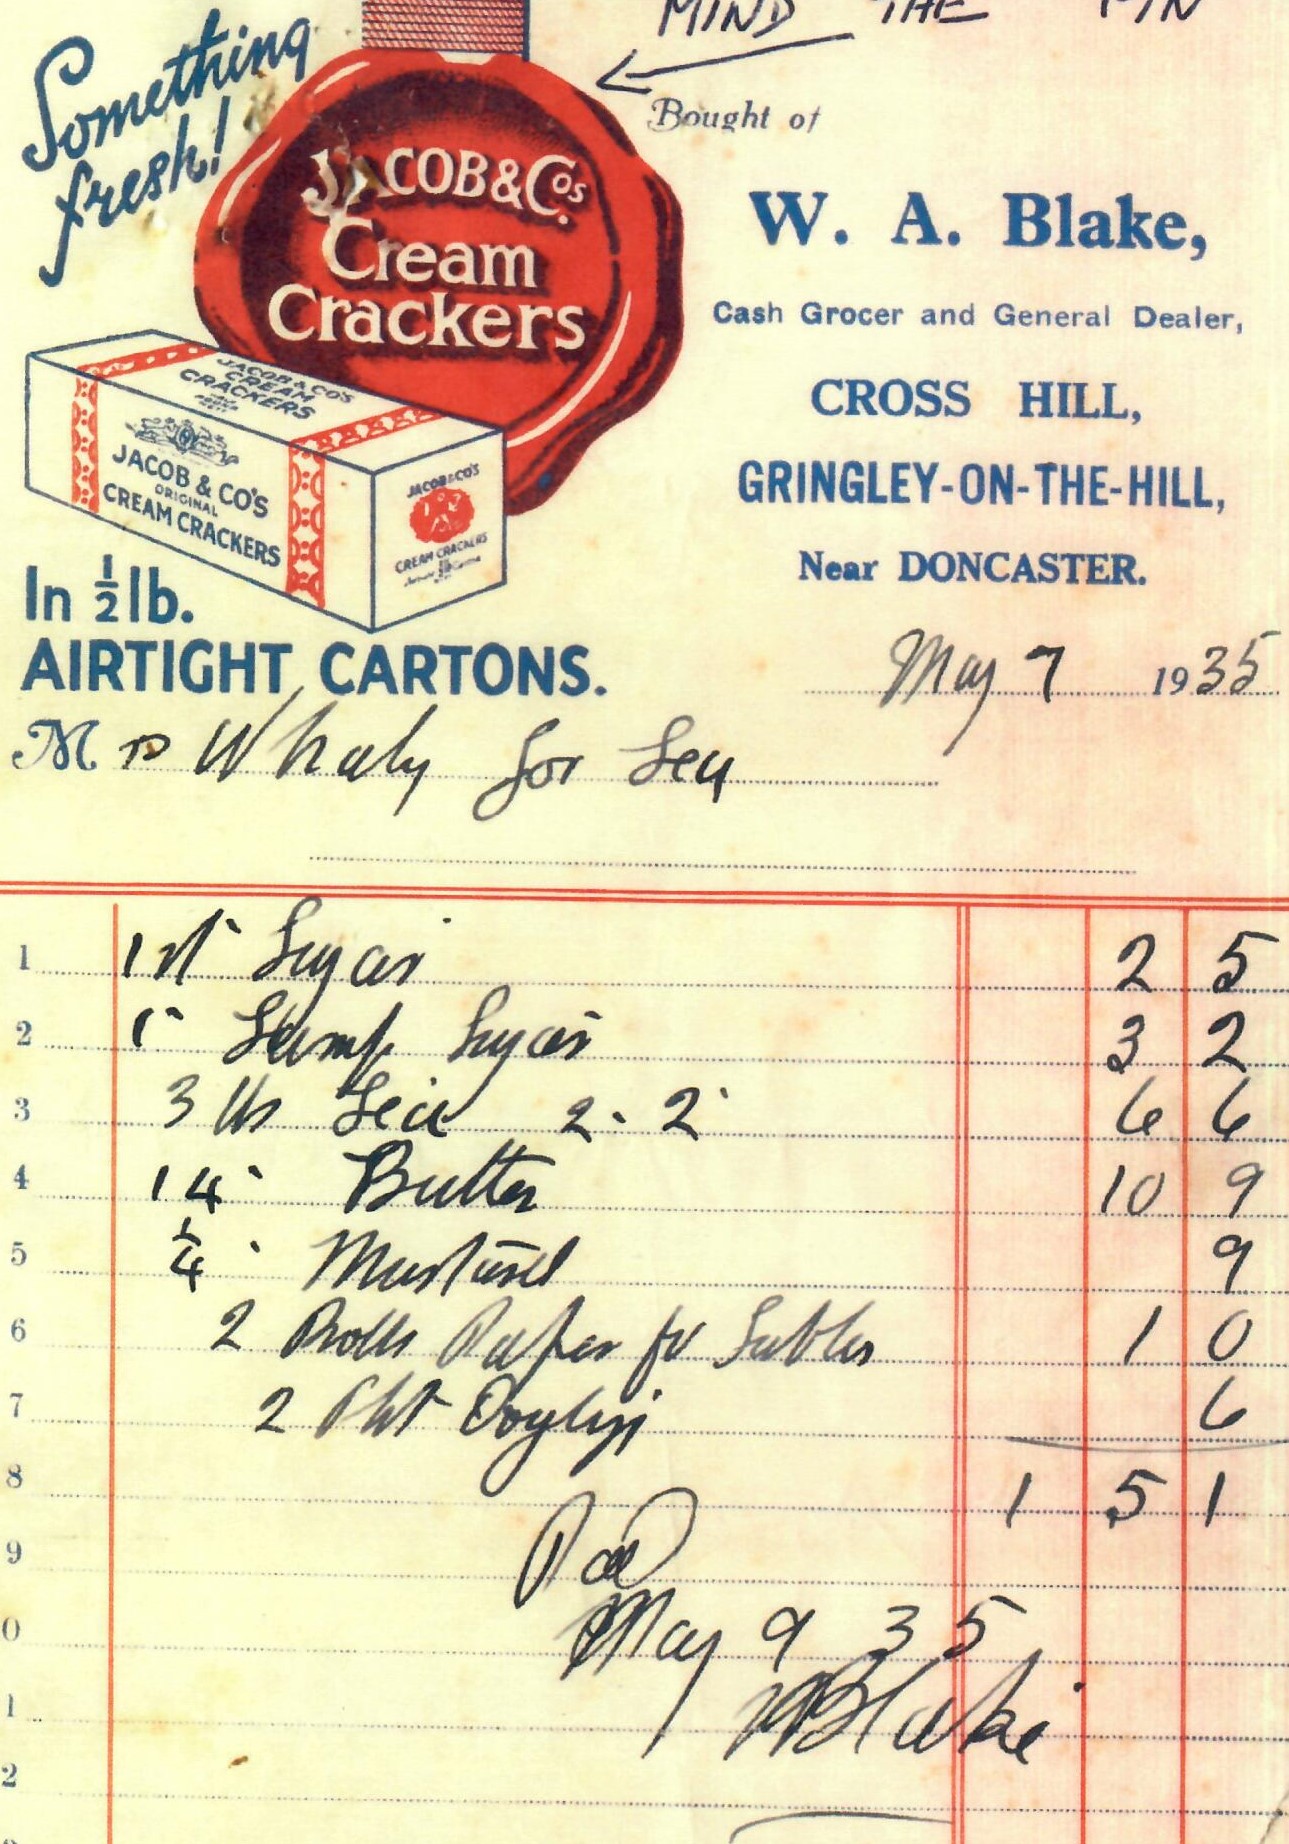 MIND THE PIN
Something
fresh!
JACOB & Co's.
Cream
Crackers
JACOB & CO'S
CREAM
CRACKERS
JACOB & CO'S
ORIGINAL
CREAM CRACKERS
JACOB & CO'S
CREAM CRACKERS
In ½ lb.
AIRTIGHT CARTONS.
Bought of
W. A. Blake,
Cash Grocer and General Dealer,
CROSS HILL,
GRINGLEY-ON-THE-HILL,
Near DONCASTER.
May 7 1935
Mrs Whaly for Tea
1 1 st Sugar 2 5
2 1 " Lump Sugar 3 2
3 3 lbs Tea 2 - 2 6 6
4 14 " Butter 10 9
5 ¼ " Mustard 9
6 2 Rolls Paper for Tables 1 0
7 2 Pkt Doyleys 6
8 1 5 1
9 Paid
0 May 9 35
1 WBlake
2